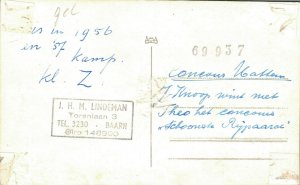 gel
in 1956
en 57
kamp.
kl. Z.
J. H. M. LINDEMAN
Torenlaan 3
TEL. 3230 - BAARN
Giro 148900
69937
concours Hattem
J. Knoop wint met
Theo het concours
"Schoonste Rijpaard"